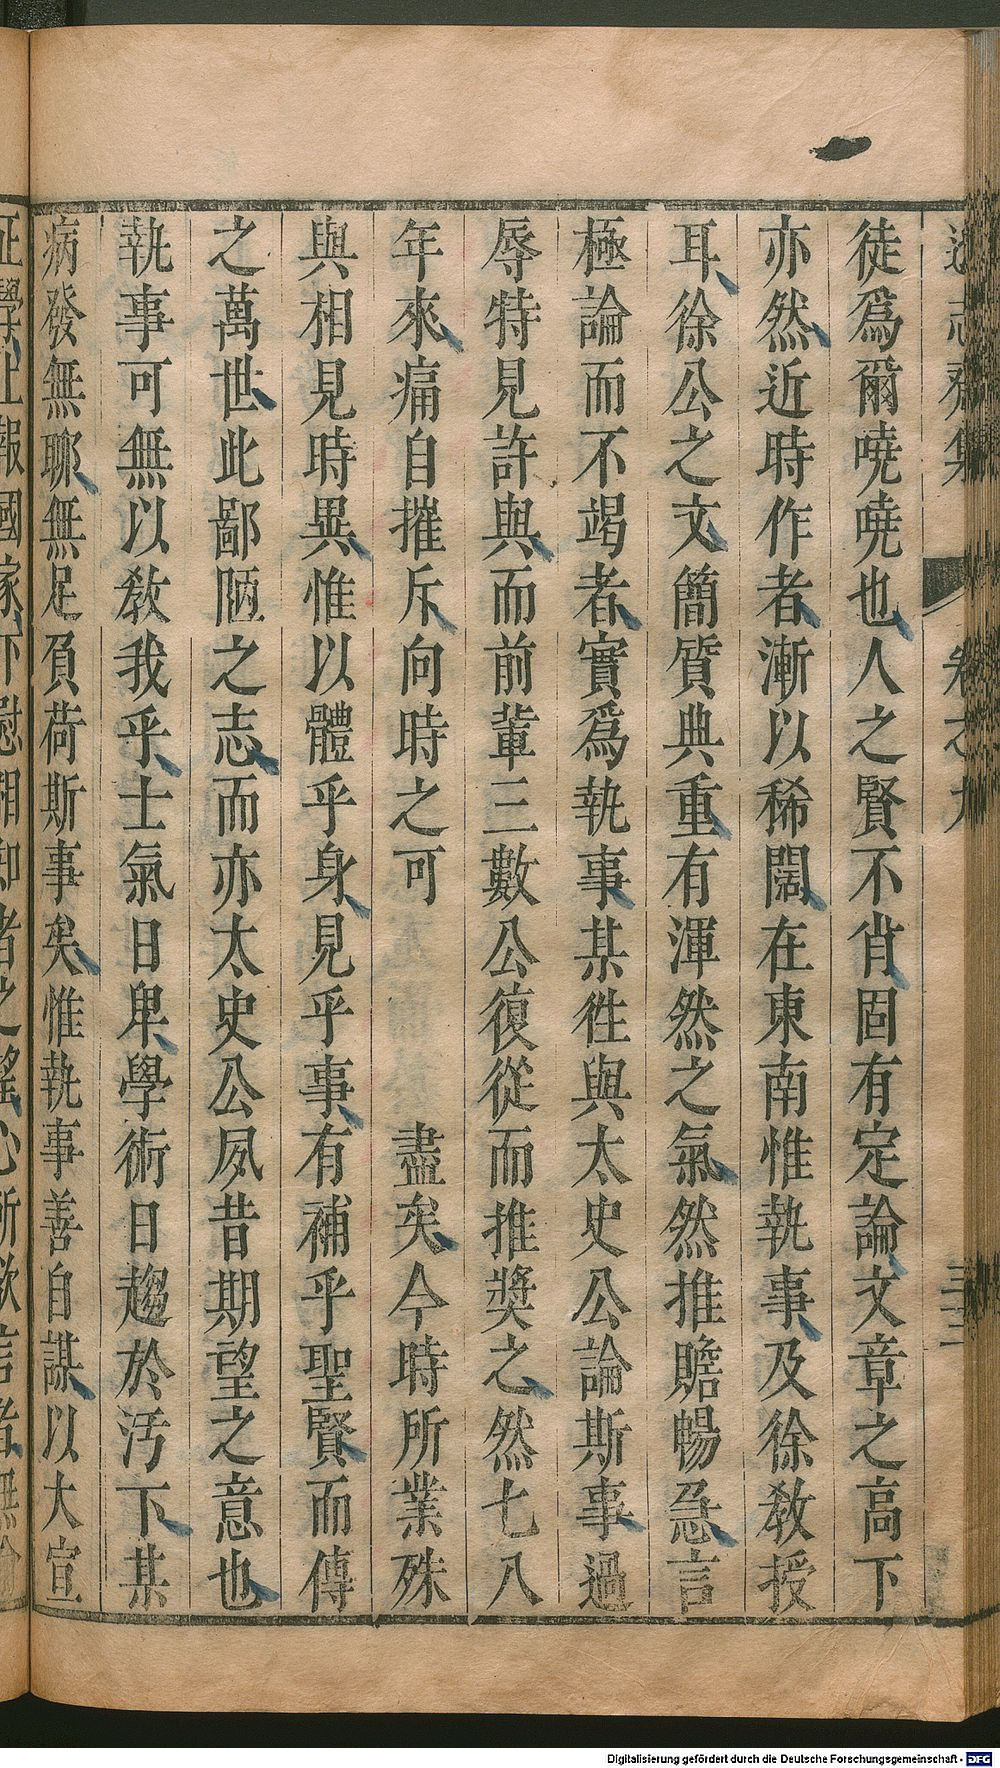 遜志齋集 卷之九 三三
徒爲爾嘵嘵也人之賢不肖固有定論文章之高下
亦然近時作者漸以稀闊在東南惟執事及徐敎授
耳徐公之文簡質典重有渾然之氣然推贍暢急言
極論而不竭者實爲執事某徃與太史公論斯事過
辱特見許與而前輩三數公復從而推奬之然七八
年來痛自摧斥向時之可 盡矣今時所業殊
與相見時異惟以體乎身見乎事有補乎聖賢而傳
之萬世此鄙陋之志而亦太史公夙昔期望之意也
執事可無以敎我乎士氣日卑學術日趨於汚下某
病發無聊無足負荷斯事矣惟執事善自謀以大宣
正學上報國家下慰相知者之望心所欲言者無
Digitalisierung gefördert durch die Deutsche Forschungsgemeinschaft - DFG